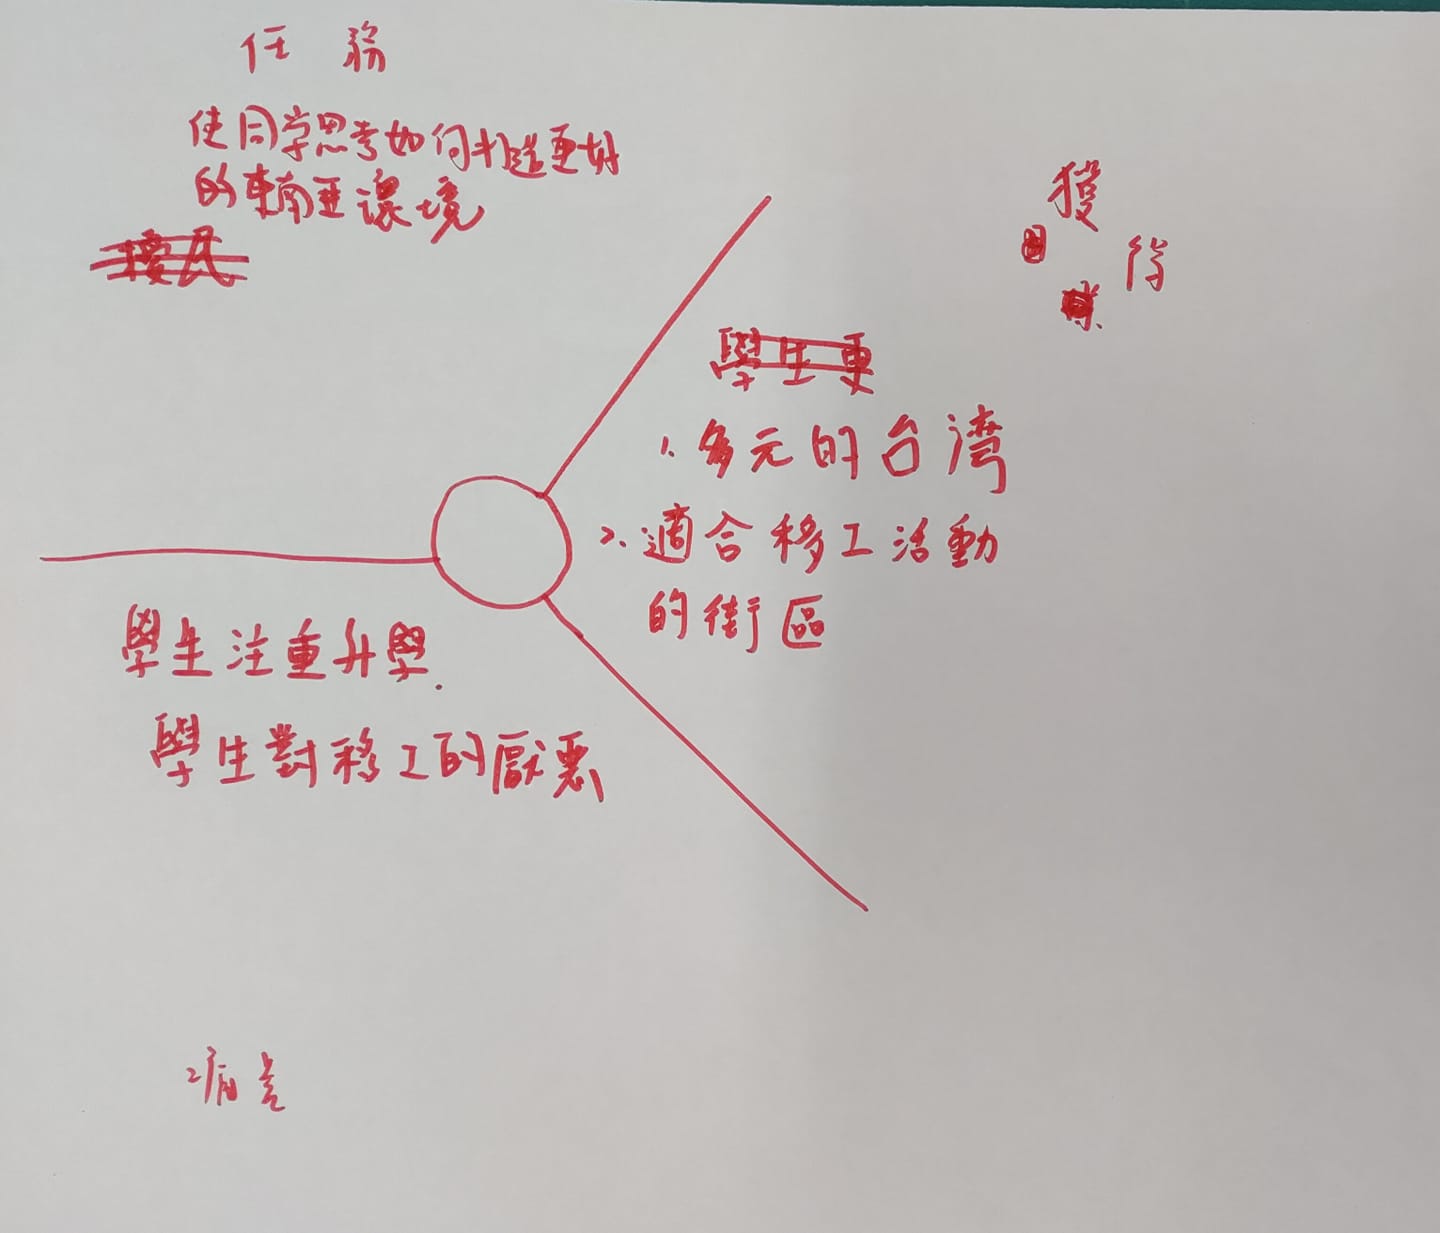 任務
使同學思考如何打造更好
的東南亞環境
獲得
學生更
1. 多元的台湾
2. 適合移工活動
的街區
學生注重升學.
學生對移工的厭惡
痛点